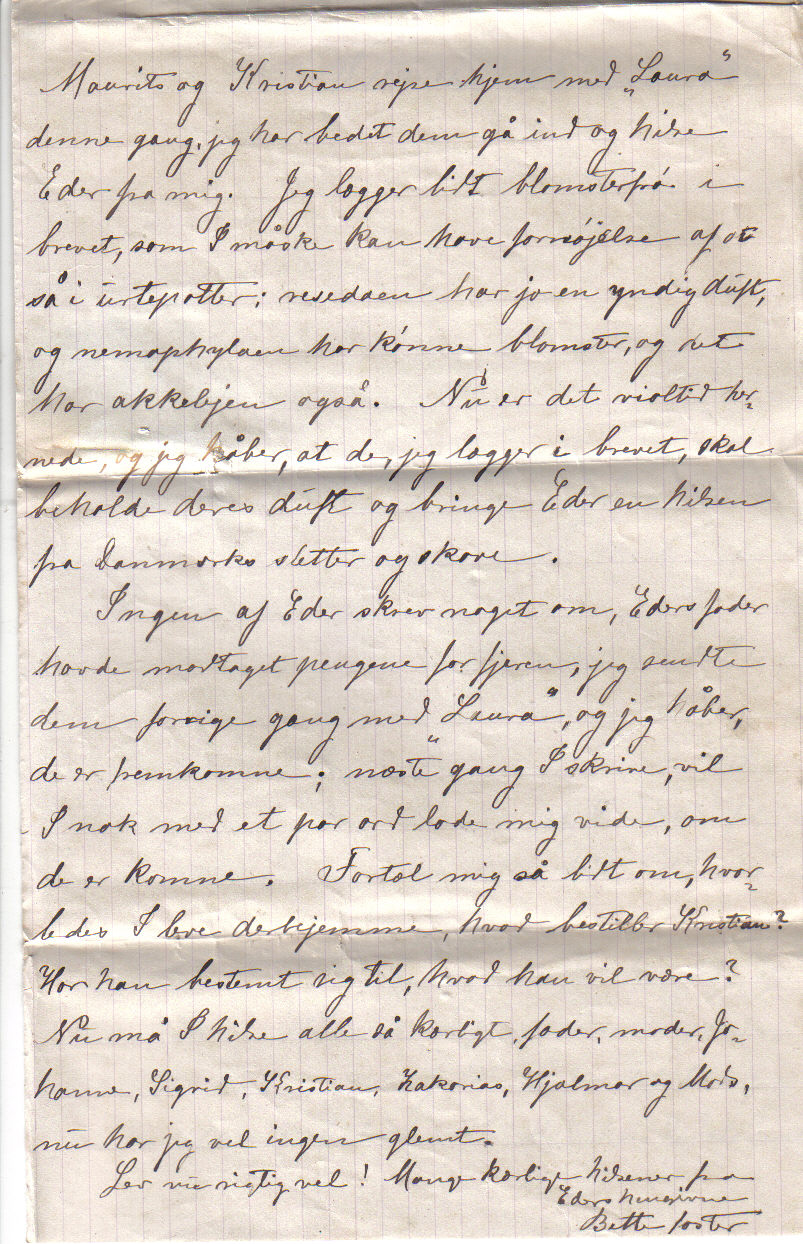 Maurits og Kristian rejse hjem med „Laura“
denne gang, jeg har bedet dem gå ind og hilse
Eder fra mig. Jeg lægger lidt blomsterfrö i
brevet, som I måske kan have fornöjelse af at
så i urtepotter; resedaen har jo en yndig duft,
og nemophylaen har könne blomster, og det
har akkelejen også. Nu er det violtid her-
nede, og jeg håber, at de, jeg lægger i brevet, skal
beholde deres duft og bringe Eder en hilsen
fra Danmarks sletter og skove.
Ingen af Eder skrev noget om, Eders fader
havde modtaget pengene for fjeren, jeg sendte
dem forrige gang med „Laura“, og jeg håber,
de er fremkomne; næste gang I skrive, vil
I nok med et par ord lade mig vide, om
de er komne. Fortæl mig så lidt om, hvor-
ledes I leve derhjemme, hvad bestiller Kristian?
Har han bestemt sig til, hvad han vil være?
Nu må I hilse alle så kærligt, fader, moder, Jo-
hanne, Sigrid, Kristian, Zakarias, Hjalmar og Mads,
nu har jeg vel ingen glemt.
Lev nu rigtig vel! Mange kærlige hilsener fra
Eders hengivne
Bette faster